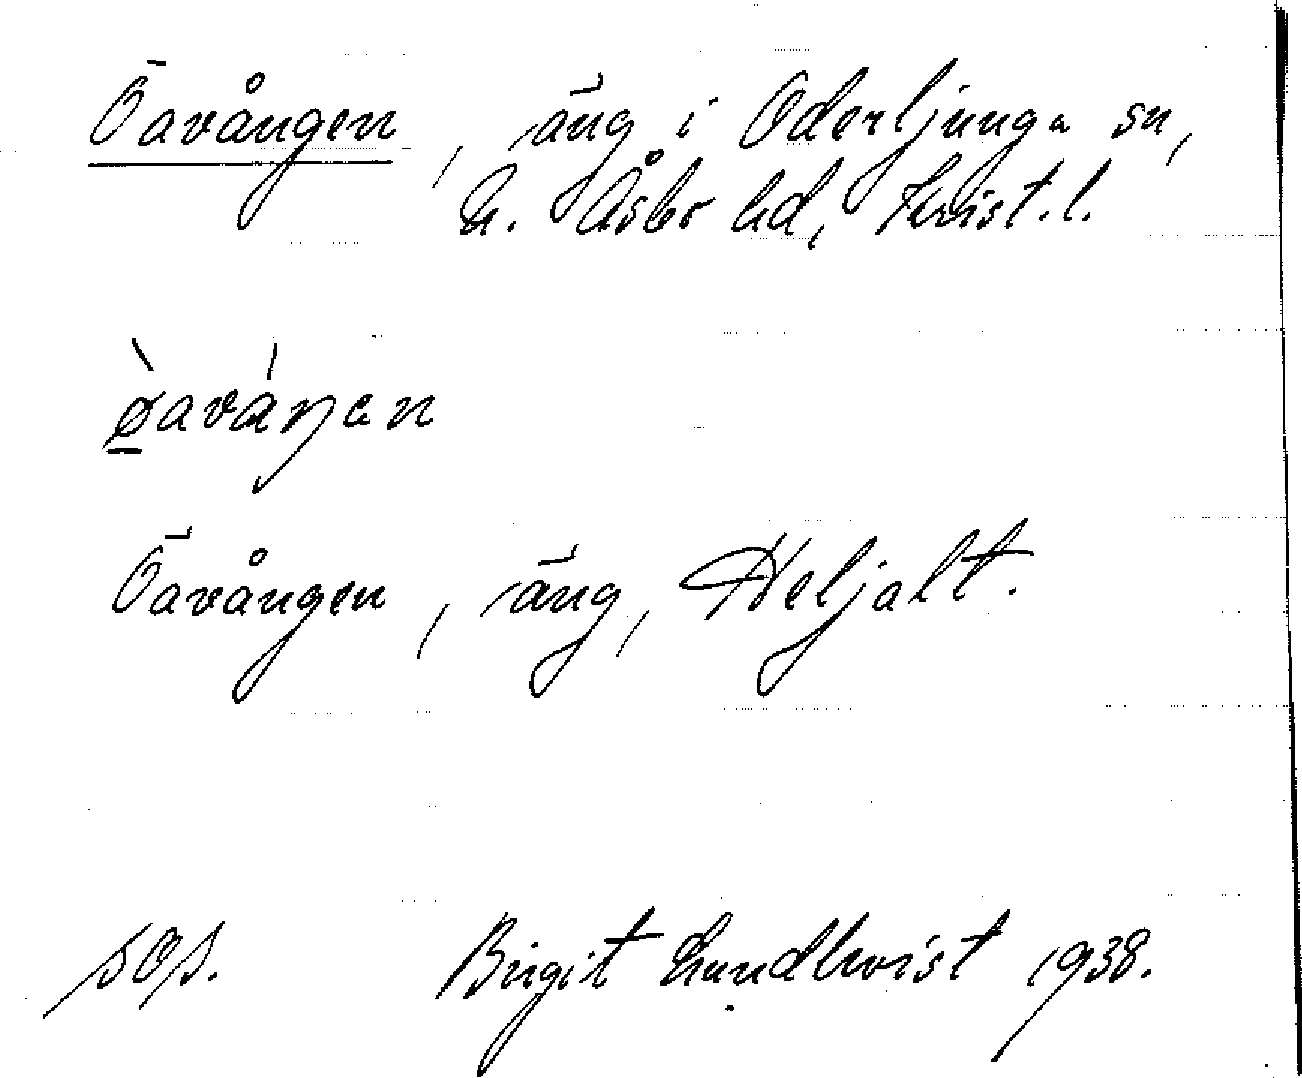 Öavången, äng i Oderljunga sn,
N. Åsbo hd, Krist. l.
ø̱̀aváŋen
Öavången, äng, Heljalt.
sOs. Birgit Lundkvist 1938.